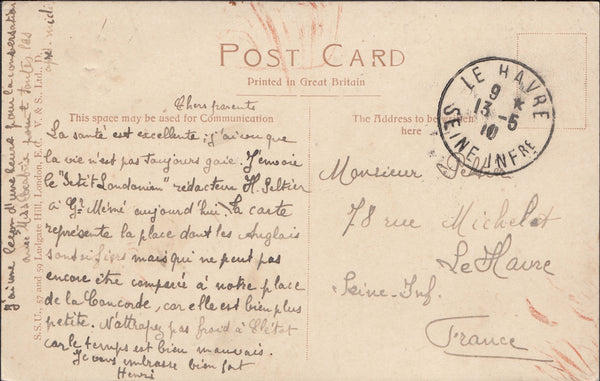 POST CARD
Printed in Great Britain
This space may be used for Communication
The Address to be
here
Chers parents
La santé est excellente; j'ai vu que
la vie n'est pas toujours gaie. J'envoie
le "Petit Londonien" rédacteur H. Peltier
à Gd Mémé aujourd'hui. La carte
représente la place dont les Anglais
sont si fiers mais qui ne peut pas
encore être comparée à notre place
de la Concorde, car elle est bien plus
petite. N'attrapez pas froid à
car le temps est bien mauvais.
Je vous embrasse bien fort
Henri
J'ai une leçon d'une heure pour la conversation
avec pour toutes les
après midi
S.S.U., 57 and 59 Ludgate Hill, London, E.C. V. & S., Ltd., D.
LE HAVRE
9 *
13 - 5
10
SEINE INFRE
Monsieur
78 rue Michelet
Le Havre
Seine-Inf.
France